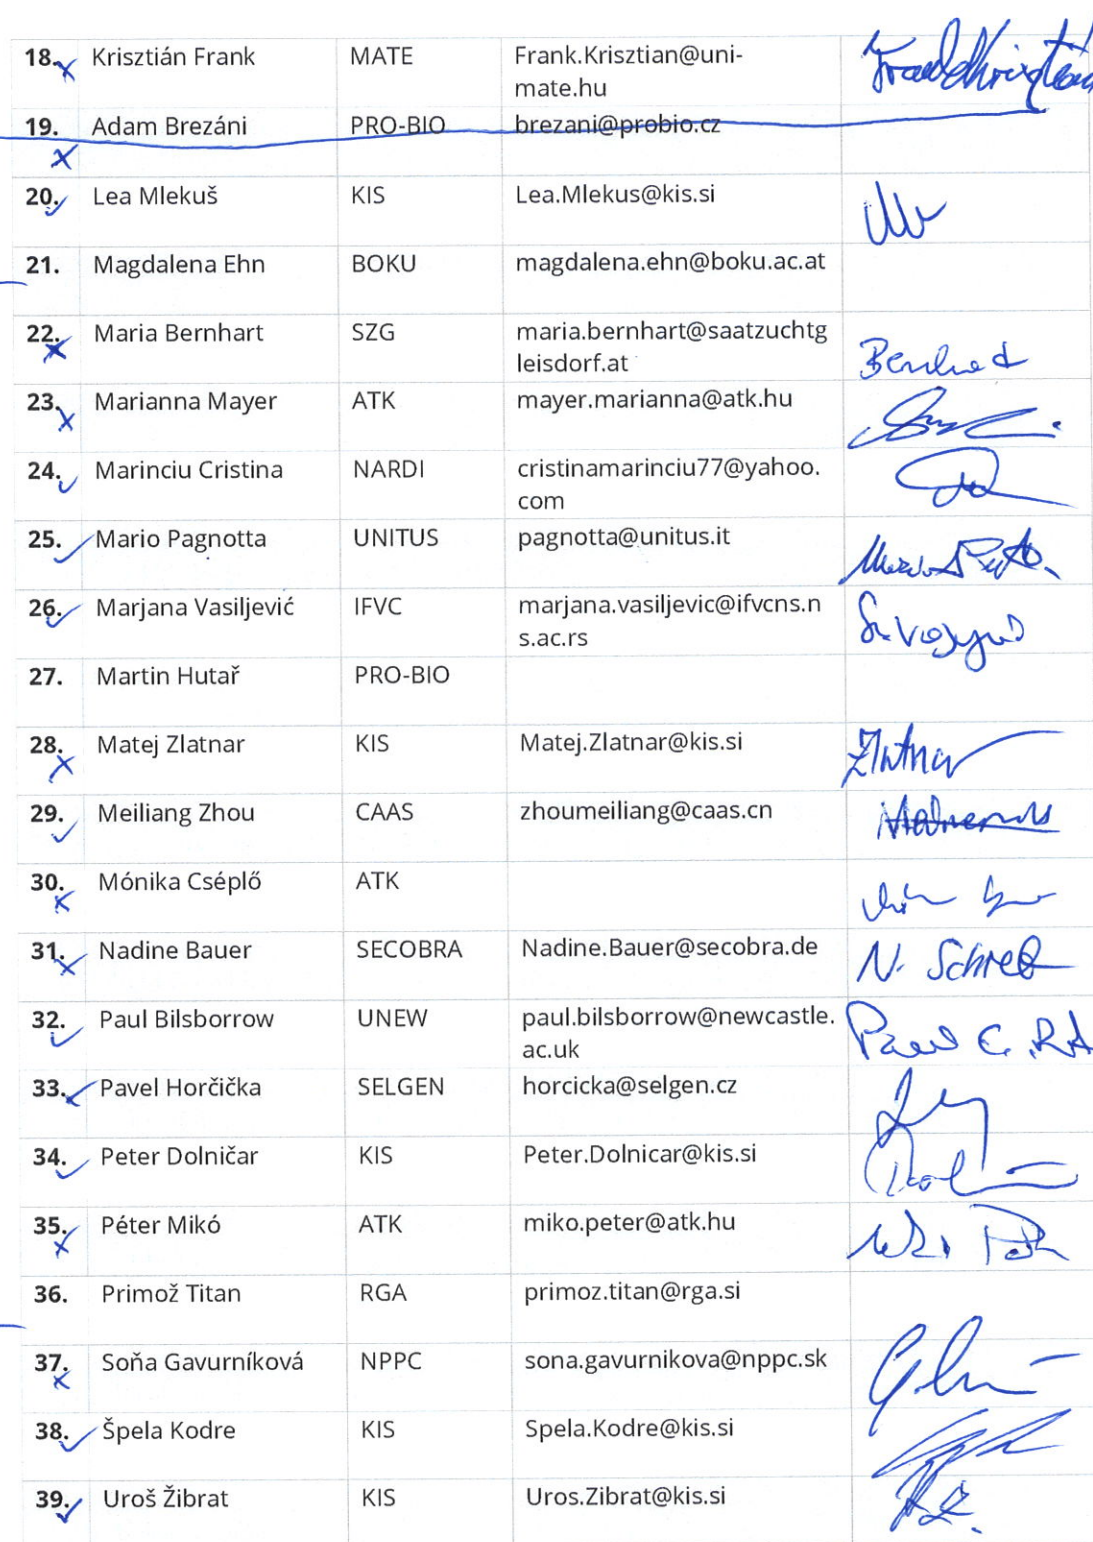 18. Krisztián Frank MATE Frank.Krisztian@uni-
mate.hu
19. Adam Brezáni PRO-BIO brezani@probio.cz
20. Lea Mlekuš KIS Lea.Mlekus@kis.si
21. Magdalena Ehn BOKU magdalena.ehn@boku.ac.at
22. Maria Bernhart SZG maria.bernhart@saatzuchtg
leisdorf.at
23. Marianna Mayer ATK mayer.marianna@atk.hu
24. Marinciu Cristina NARDI cristinamarinciu77@yahoo.
com
25. Mario Pagnotta UNITUS pagnotta@unitus.it
26. Marjana Vasiljević IFVC marjana.vasiljevic@ifvcns.n
s.ac.rs
27. Martin Hutař PRO-BIO
28. Matej Zlatnar KIS Matej.Zlatnar@kis.si
29. Meiliang Zhou CAAS zhoumeiliang@caas.cn
30. Mónika Cséplő ATK
31. Nadine Bauer SECOBRA Nadine.Bauer@secobra.de
32. Paul Bilsborrow UNEW paul.bilsborrow@newcastle.
ac.uk
33. Pavel Horčička SELGEN horcicka@selgen.cz
34. Peter Dolničar KIS Peter.Dolnicar@kis.si
35. Péter Mikó ATK miko.peter@atk.hu
36. Primož Titan RGA primoz.titan@rga.si
37. Soňa Gavurníková NPPC sona.gavurnikova@nppc.sk
38. Špela Kodre KIS Spela.Kodre@kis.si
39. Uroš Žibrat KIS Uros.Zibrat@kis.si